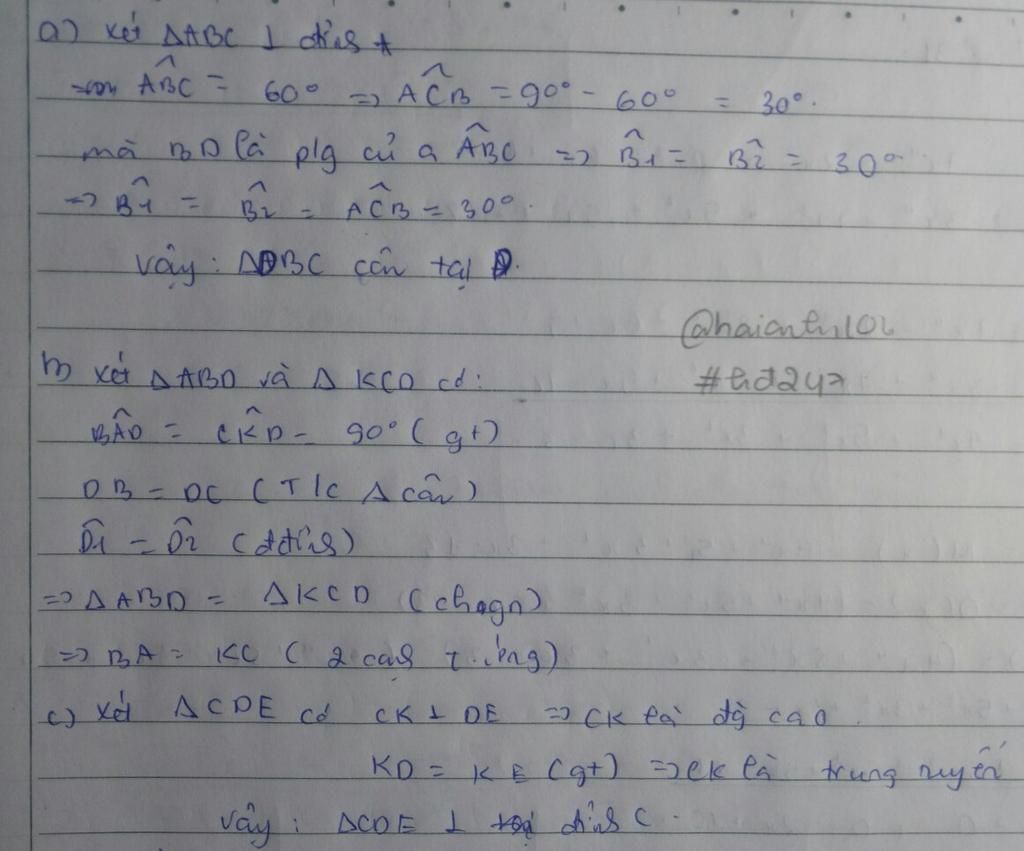 a) Xét ΔABC ⊥ đỉnh A
có ABC^ = 60° => ACB^ = 90° - 60° = 30°.
mà BD là p/g củ a ABC^ => B1^ = B2^ = 30°
=> B1^ = B2^ = ACB^ = 30°.
Vậy: ΔDBC cân tại D.
@haianh102
#hđ247
b) Xét ΔABD và ΔKCD có:
BAD^ = CKD^ = 90° (gt)
DB = DC (T/c Δ cân)
D1^ = D2^ (đđỉnh)
=> ΔABD = ΔKCD (ch-gn)
=> BA = KC (2 cạnh t.ứng)
c) Xét ΔCDE có CK ⊥ DE => CK là đg cao.
KD = KE (gt) => CK là trung tuyến
Vậy: ΔCDE ⊥ đỉnh C.